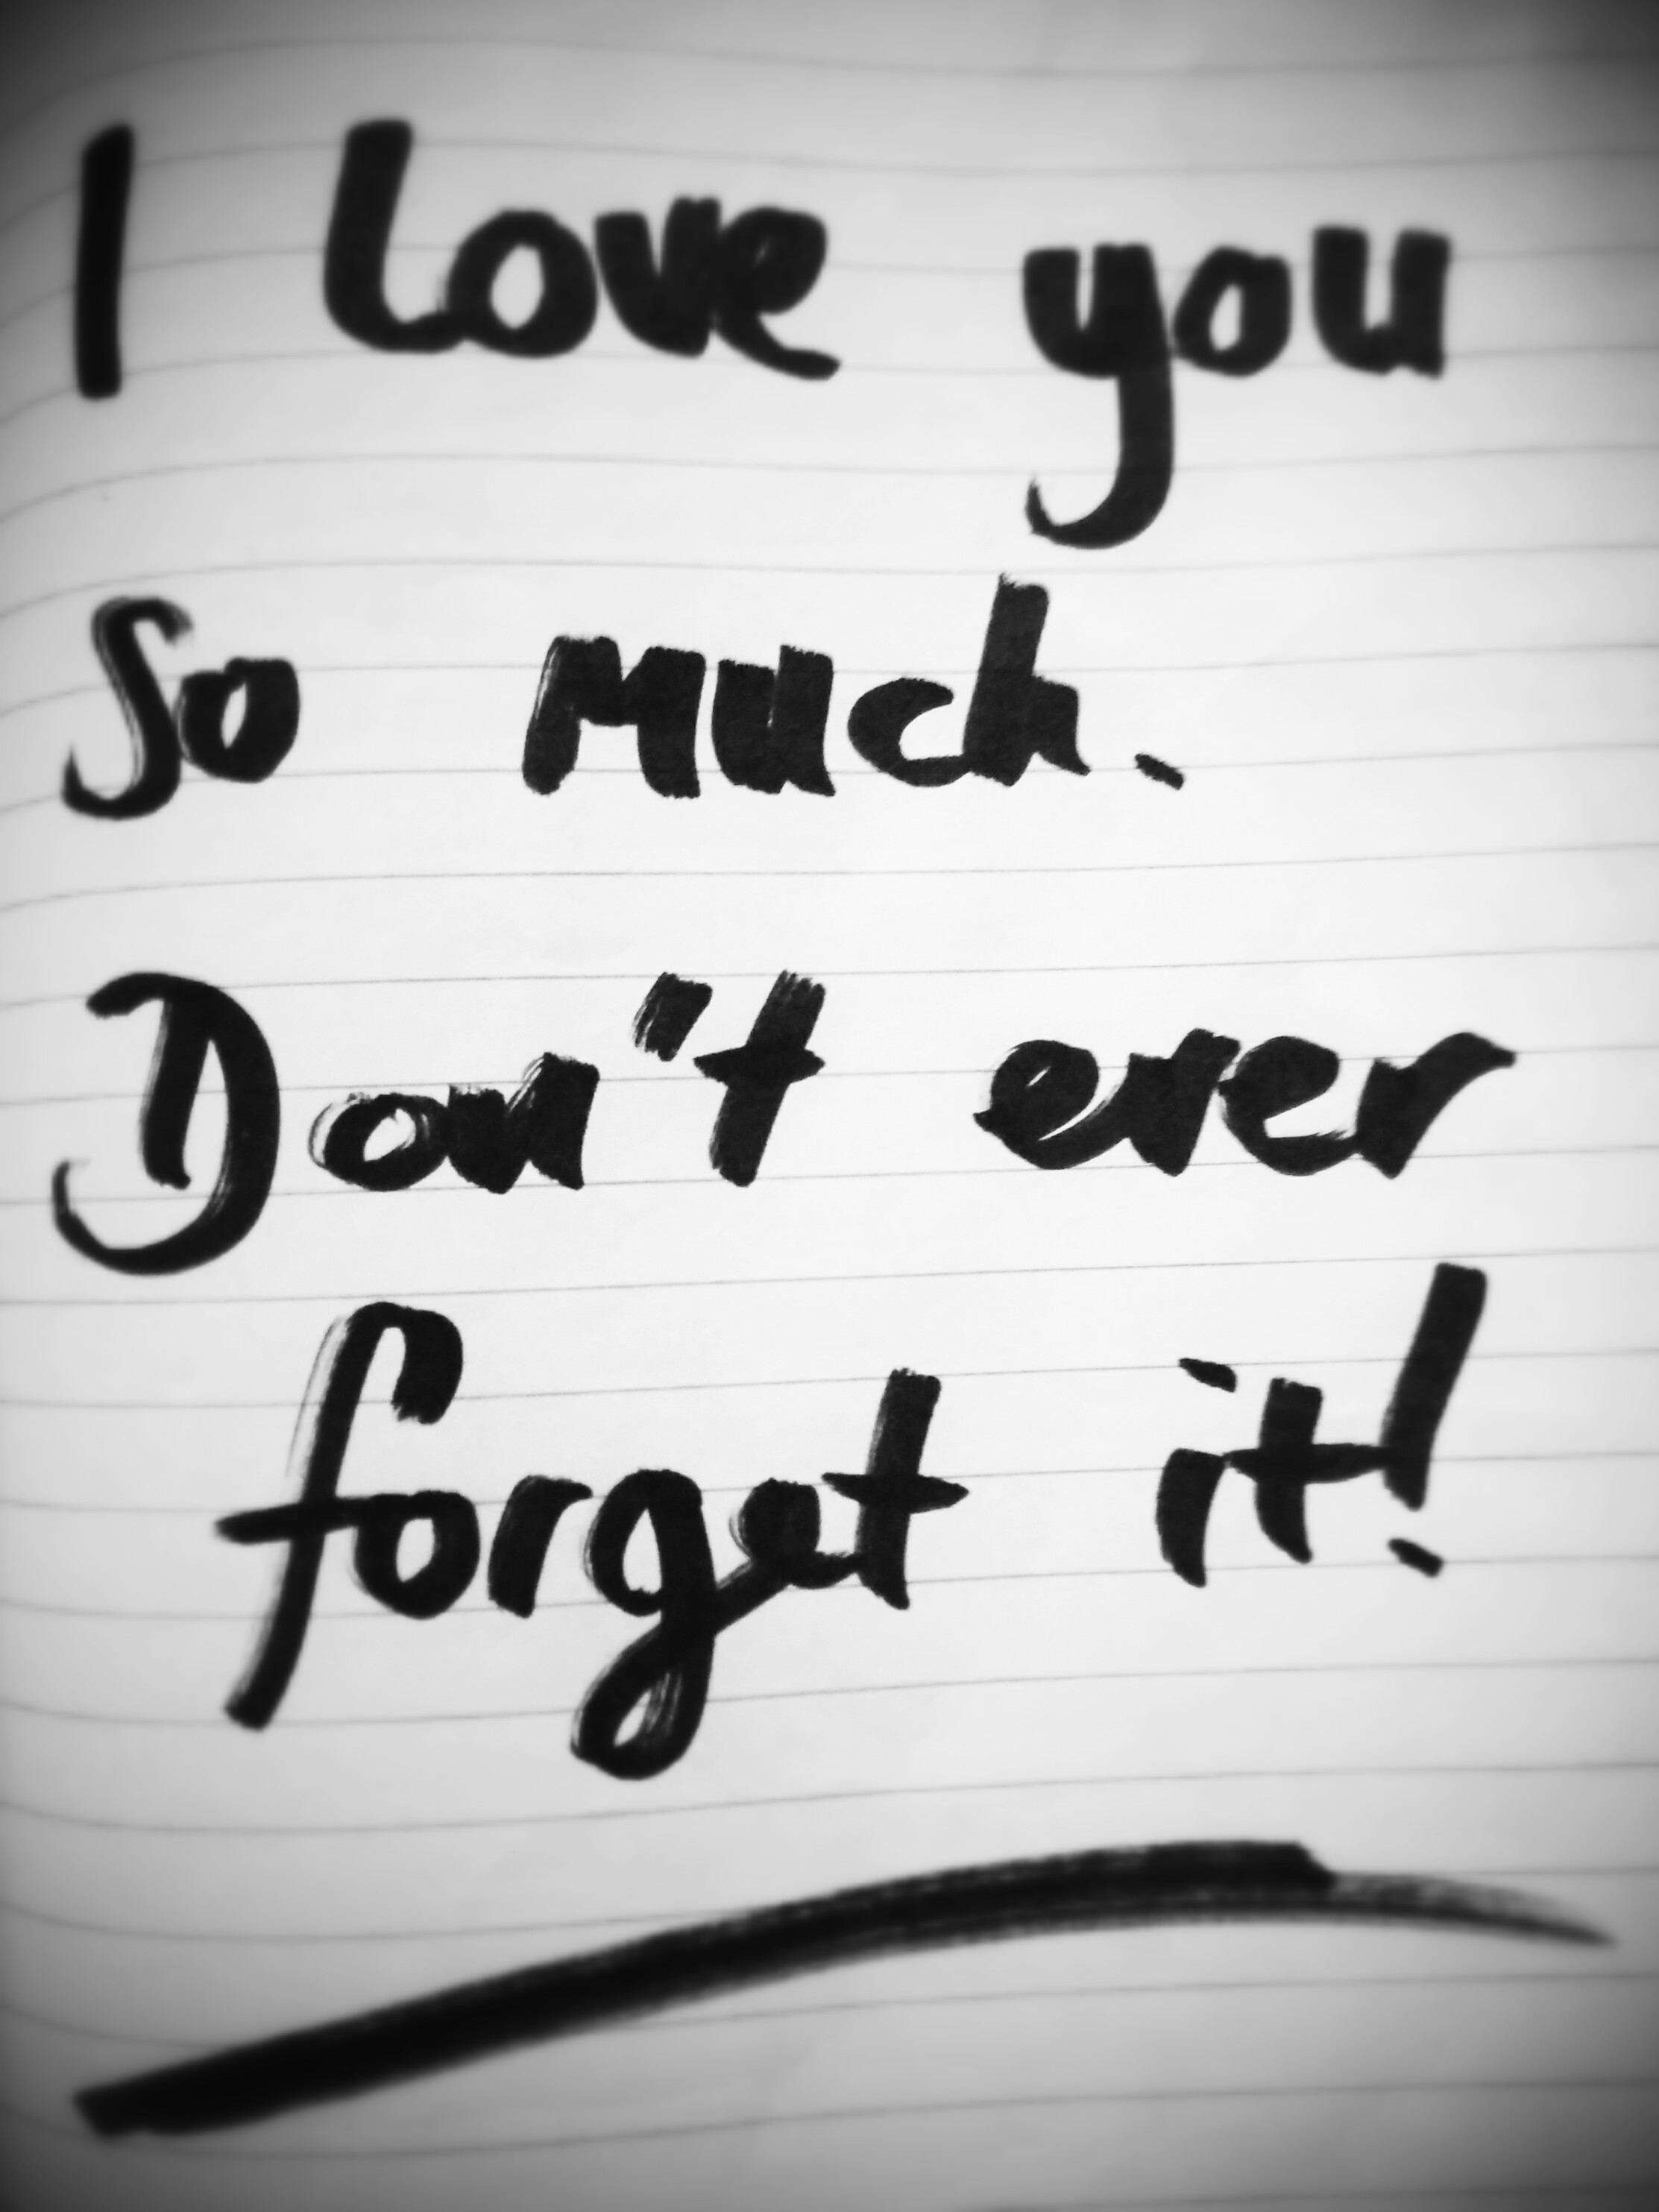 I love you
So much.
Don't ever
forget it!